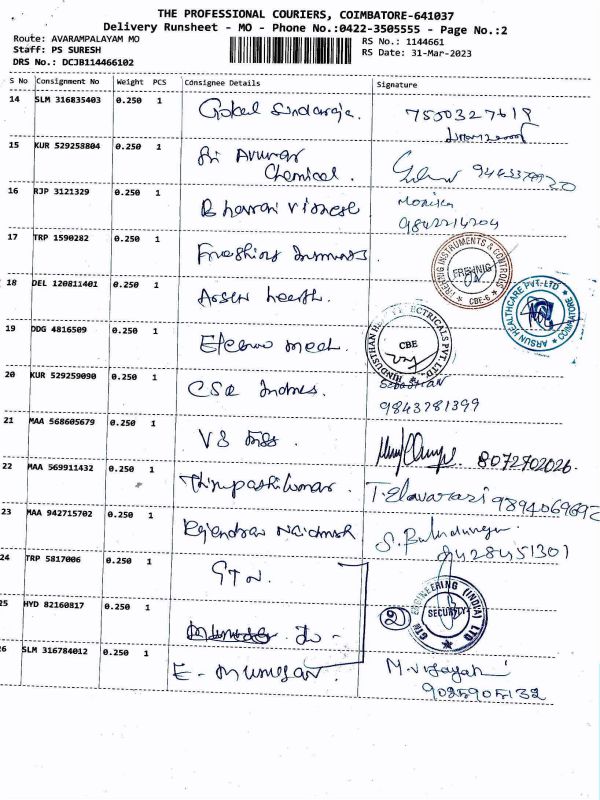 THE PROFESSIONAL COURIERS, COIMBATORE-641037
Delivery Runsheet - MO - Phone No.:0422-3505555 - Page No.:2
Route: AVARAMPALAYAM MO
RS No.: 1144661
Staff: PS SURESH
RS Date: 31-Mar-2023
DRS No.: DCJB114466102
S No Consignment No Weight PCS Consignee Details Signature
14 SLM 316835403 0.250 1 Gokul Sundaraja. 7500327619
15 KUR 529258804 0.250 1 Sri Arumar
Chemical.
16 RJP 3121329 0.250 1 Bhavai Viknesh
9842214204
17 TRP 1590282 0.250 1
FRERNIG
CBE-6
18 DEL 120811401 0.250 1 Arsun health.
ARSUN HEALTHCARE PVT-LTD COIMBATORE
19 DDG 4816509 0.250 1
HINDUSTHAN ELECTRICALS PVT. LTD
CBE
20 KUR 529259090 0.250 1 CSR Indus.
9843781399
21 MAA 568605679 0.250 1 VS 8072702026
22 MAA 569911432 0.250 1 Thirupathikumar. T. Elavarasi 9894069692
23 MAA 942715702 0.250 1 Rajendran 
9428451301
24 TRP 5817006 0.250 1 GTN.
GTN ENGINEERING (INDIA) LTD
SECURITY
25 HYD 82160817 0.250 1 do - 2
26 SLM 316784012 0.250 1 E - Murugan. M. Vijayah
9025905132